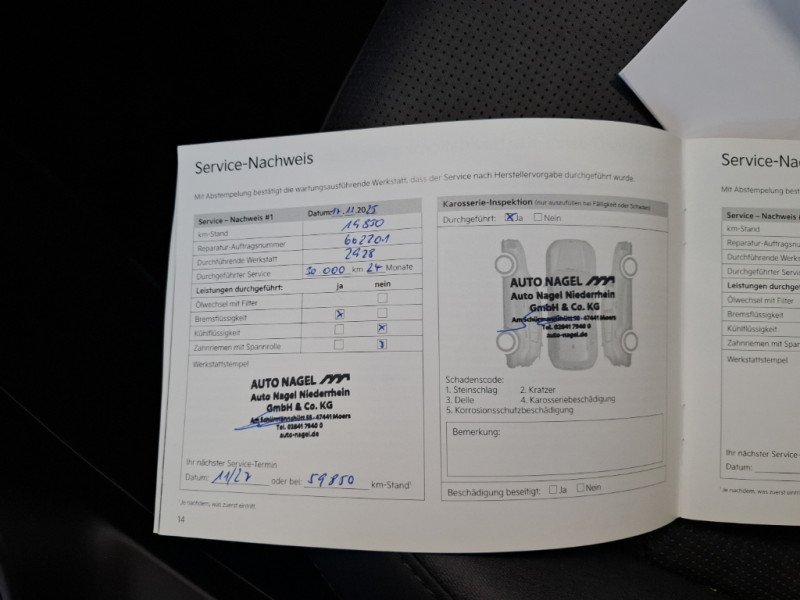 Service-Nachweis
Mit Abstempelung bestätigt die wartungsausführende Werkstatt, dass der Service nach Herstellervorgabe durchgeführt wurde.
Service – Nachweis #1 Datum: 17.11.2025
km-Stand
Reparatur-Auftragsnummer 662201
Durchführende Werkstatt 2428
Durchgeführter Service 30 000 km 24 Monate
Leistungen durchgeführt: ja nein
Ölwechsel mit Filter
Bremsflüssigkeit x
Kühlflüssigkeit x
Zahnriemen mit Spannrolle
Werkstattstempel
AUTO NAGEL
Auto Nagel Niederrhein
GmbH & Co. KG
Am Schürmannshütt 58 - 47441 Moers
Tel. 02841 7940 0
auto-nagel.de
Ihr nächster Service-Termin
Datum: 11/27 oder bei: 59850 km-Stand¹
¹Je nachdem, was zuerst eintritt.
14
Karosserie-Inspektion (nur auszufüllen bei Fälligkeit oder Schaden)
Durchgeführt: x Ja Nein
AUTO NAGEL
Auto Nagel Niederrhein
GmbH & Co. KG
Am Schürmannshütt 58 - 47441 Moers
Tel. 02841 7940 0
auto-nagel.de
Schadenscode:
1. Steinschlag 2. Kratzer
3. Delle 4. Karosseriebeschädigung
5. Korrosionsschutzbeschädigung
Bemerkung:
Beschädigung beseitigt: Ja Nein
Service-Na
Mit Abstempelung
Service – Nachweis
km-Stand
Reparatur-Auftragsnu
Durchführende Werks
Durchgeführter Servic
Leistungen durchgefü
Ölwechsel mit Filter
Bremsflüssigkeit
Kühlflüssigkeit
Zahnriemen mit Span
Werkstattstempel
Ihr nächster Service-
Datum:
¹ Je nachdem, was zuerst